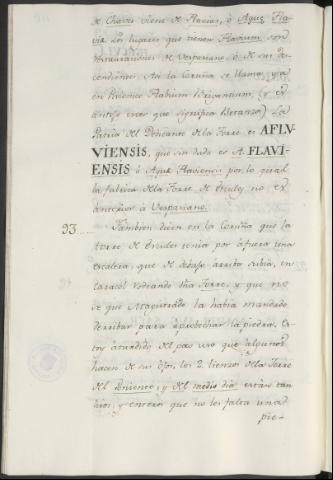 de Chaves viene de Flavias, ò Aquæ Fla-
viæ los lugares que tienen Flavium, son
de Vespasiano, ò de sus de-
cendientes. Asi la Coruña se llama, ya
en Flabium Brigantium, (y es
antojo creer que significa Betanzos) La
Patria del Dedicante de la Torre es AFLV-
VIENSIS, que sin duda es A. FLAVI-
ENSIS ò Aquæ Flaviensis por lo qual
la fabrica de la Torre de Ercules no es
anterior à Vespasiano.
93 Tambien dicen en la Coruña que la
torre de Ercules tenia por afuera una
escalera, que de debajo arriba subia, en
caracol rodeando dha Torre, y que no
se que Magistrado la habia mandado
derribar para aprobechar la piedra. Es-
toy aturdido del poco uso que algunos
hacen de sus ojos, los 2 lienzos de la Torre
del Poniente, y del medio dia estàn tan
lisos, y enteros que no les falta una
pie-